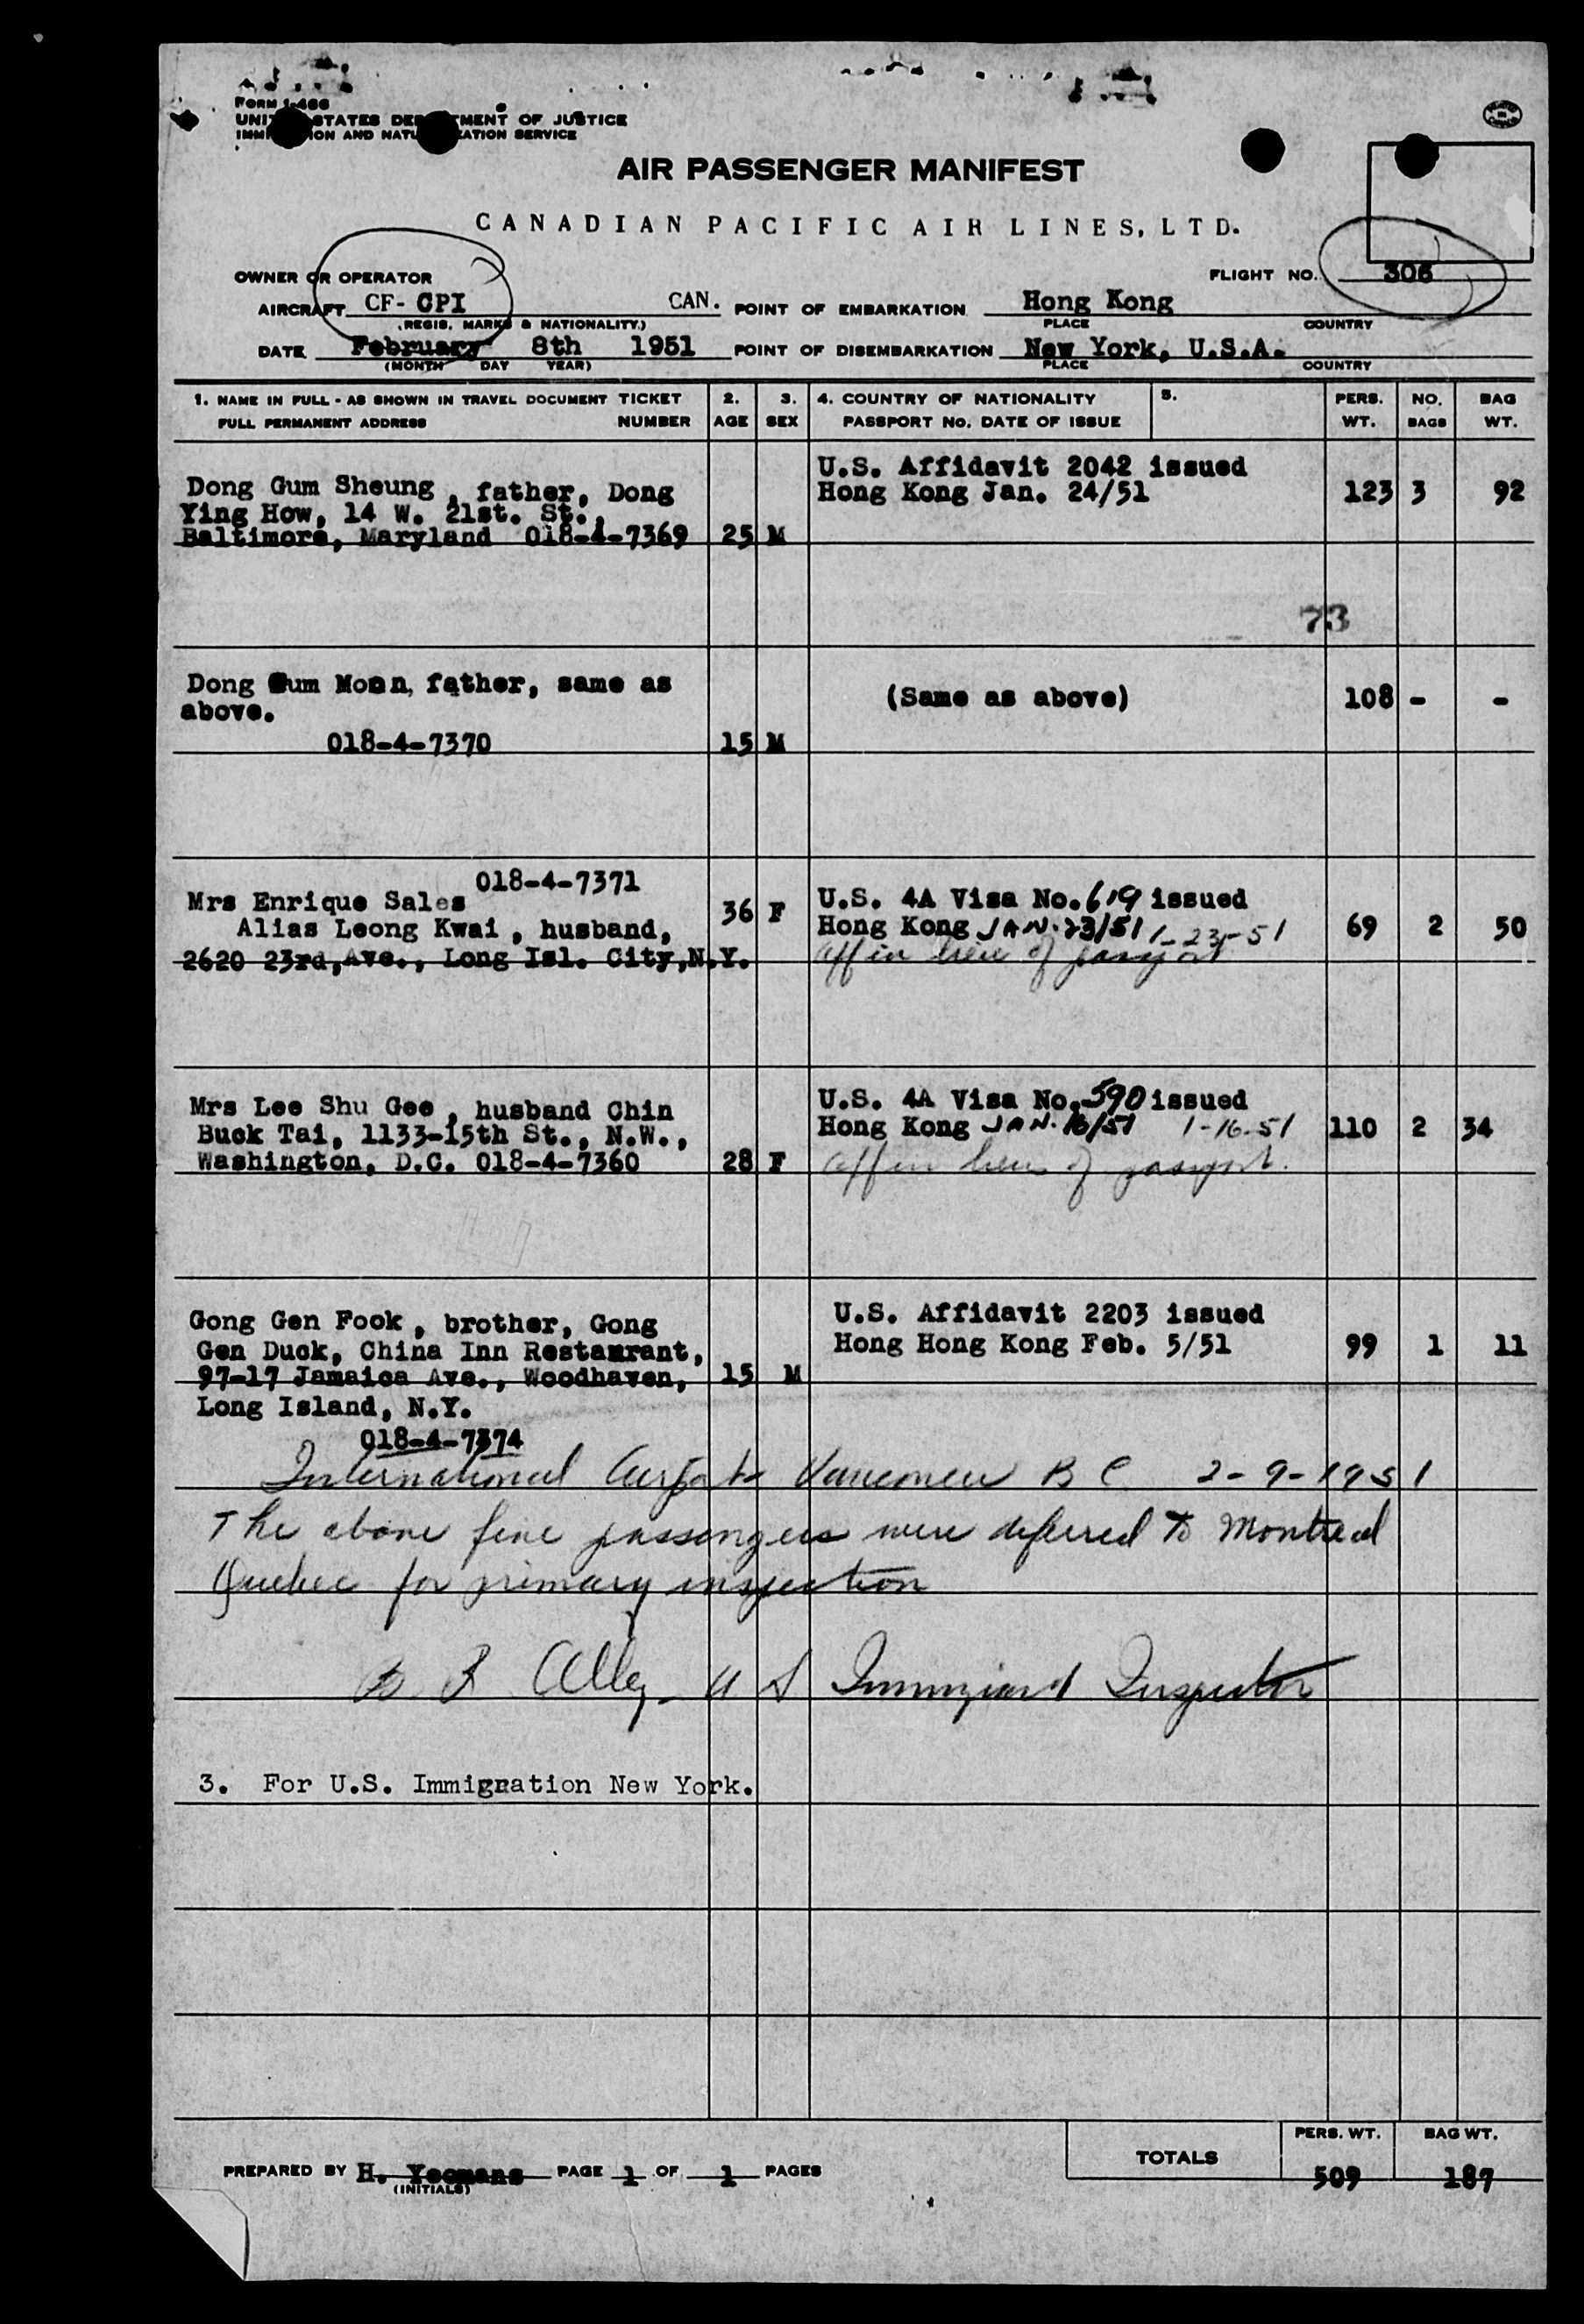 FORM I-466
UNITED STATES DEPARTMENT OF JUSTICE
IMMIGRATION AND NATURALIZATION SERVICE
AIR PASSENGER MANIFEST
CANADIAN PACIFIC AIR LINES, LTD.
OWNER OR OPERATOR FLIGHT NO. 306
AIRCRAFT CF- CPI CAN. POINT OF EMBARKATION Hong Kong
(REGIS. MARKS & NATIONALITY) PLACE COUNTRY
DATE February 8th 1951 POINT OF DISEMBARKATION New York, U.S.A.
(MONTH DAY YEAR) PLACE COUNTRY
1. NAME IN FULL - AS SHOWN IN TRAVEL DOCUMENT TICKET 2. 3. 4. COUNTRY OF NATIONALITY 5. PERS. NO. BAG
FULL PERMANENT ADDRESS NUMBER AGE SEX PASSPORT No. DATE OF ISSUE WT. BAGS WT.
U.S. Affidavit 2042 issued
Dong Gum Sheung, father, Dong Hong Kong Jan. 24/51 123 3 92
Ying How, 14 W. 21st. St.,
Baltimore, Maryland 018-4-7369 25 M
73
Dong Gum Moon, father, same as (Same as above) 108 - -
above.
018-4-7370 15 M
018-4-7371
Mrs Enrique Sales 36 F U.S. 4A Visa No. 619 issued
Alias Leong Kwai, husband, Hong Kong JAN. 23/51 1-23-51 69 2 50
2620 23rd, Ave., Long Isl. City, N.Y. aff in lieu of passport
Mrs Lee Shu Gee, husband Chin U.S. 4A Visa No. 590 issued
Buck Tai, 1133-15th St., N.W., Hong Kong JAN. 16/51 1-16-51 110 2 34
Washington, D.C. 018-4-7360 28 F aff in lieu of passport.
Gong Gen Fook, brother, Gong U.S. Affidavit 2203 issued
Gen Duck, China Inn Restaurant, Hong Hong Kong Feb. 5/51 99 1 11
97-17 Jamaica Ave., Woodhaven, 15 M
Long Island, N.Y.
018-4-7374
International Airport Vancouver B C 2-9-1951
The above five passengers were deferred to Montreal
Quebec for primary inspection
U S Immigrant Inspector
3. For U.S. Immigration New York.
PREPARED BY H. Yeomans PAGE 1 OF 1 PAGES TOTALS PERS. WT. BAG WT.
(INITIALS) 509 187